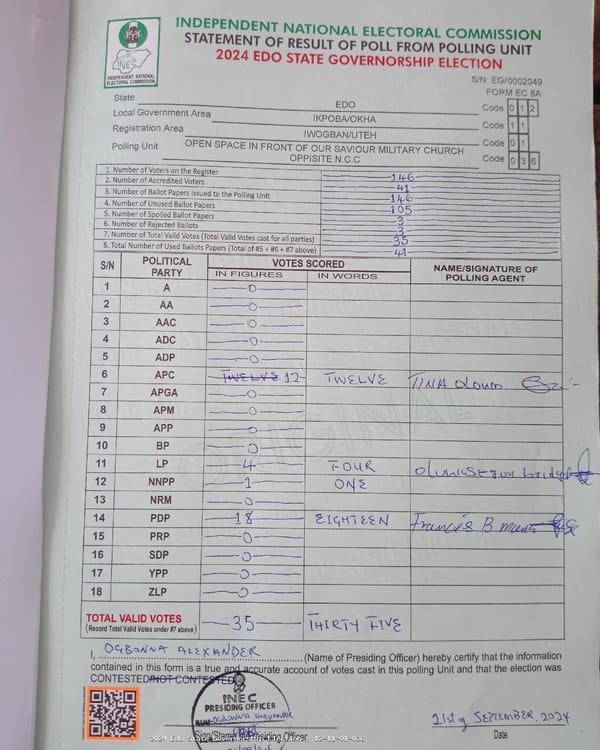 INDEPENDENT NATIONAL ELECTORAL COMMISSION
STATEMENT OF RESULT OF POLL FROM POLLING UNIT
2024 EDO STATE GOVERNORSHIP ELECTION
INEC
INDEPENDENT NATIONAL
ELECTORAL COMMISSION
S/N: EG/0002049
FORM EC 8A
State EDO Code 0 1 2
Local Government Area IKPOBA/OKHA Code 1 1
Registration Area IWOGBAN/UTEH Code 0 1
Polling Unit OPEN SPACE IN FRONT OF OUR SAVIOUR MILITARY CHURCH OPPISITE N.C.C Code 0 3 6
1. Number of Voters on the Register 146
2. Number of Accredited Voters 41
3. Number of Ballot Papers issued to the Polling Unit 146
4. Number of Unused Ballot Papers 105
5. Number of Spoiled Ballot Papers 3
6. Number of Rejected Ballots 3
7. Number of Total Valid Votes (Total Valid Votes cast for all parties) 35
8. Total Number of Used Ballots Papers (Total of #5 + #6 + #7 above) 41
S/N POLITICAL PARTY VOTES SCORED NAME/SIGNATURE OF POLLING AGENT
IN FIGURES IN WORDS
1 A 0
2 AA 0
3 AAC 0
4 ADC 0
5 ADP 0
6 APC TWELVE 12 TWELVE TINA
7 APGA 0
8 APM 0
9 APP 0
10 BP 0
11 LP 4 FOUR
12 NNPP 1 ONE
13 NRM 0
14 PDP 18 EIGHTEEN Francis B
15 PRP 0
16 SDP 0
17 YPP 0
18 ZLP 0
ORIGINAL
TOTAL VALID VOTES 35 THIRTY FIVE
(Record Total Valid Votes under #7 above)
I, OGBONNA ALEXANDER (Name of Presiding Officer) hereby certify that the information
contained in this form is a true and accurate account of votes cast in this polling unit and that the election was
CONTESTED/NOT CONTESTED
INEC
PRESIDING OFFICER
NAME OGBONNA ALEXANDER
Sign/Stamp of Presiding Officer
21st of SEPTEMBER, 2024
Date